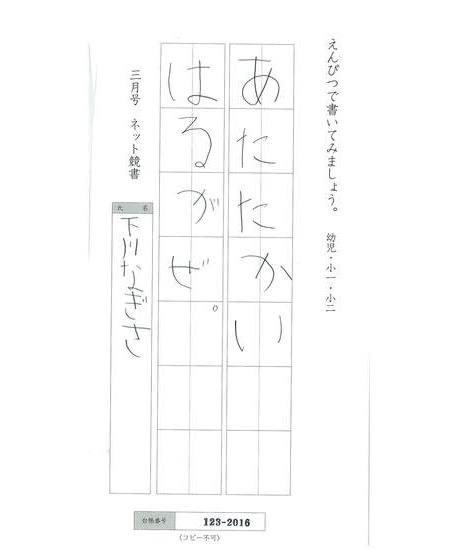 えんぴつで書いてみましょう。 幼児・小一・小二
あたたかい
はるがぜ。
三月号 ネット競書
氏名
下川なぎさ
台帳番号 123-2016
(コピー不可)